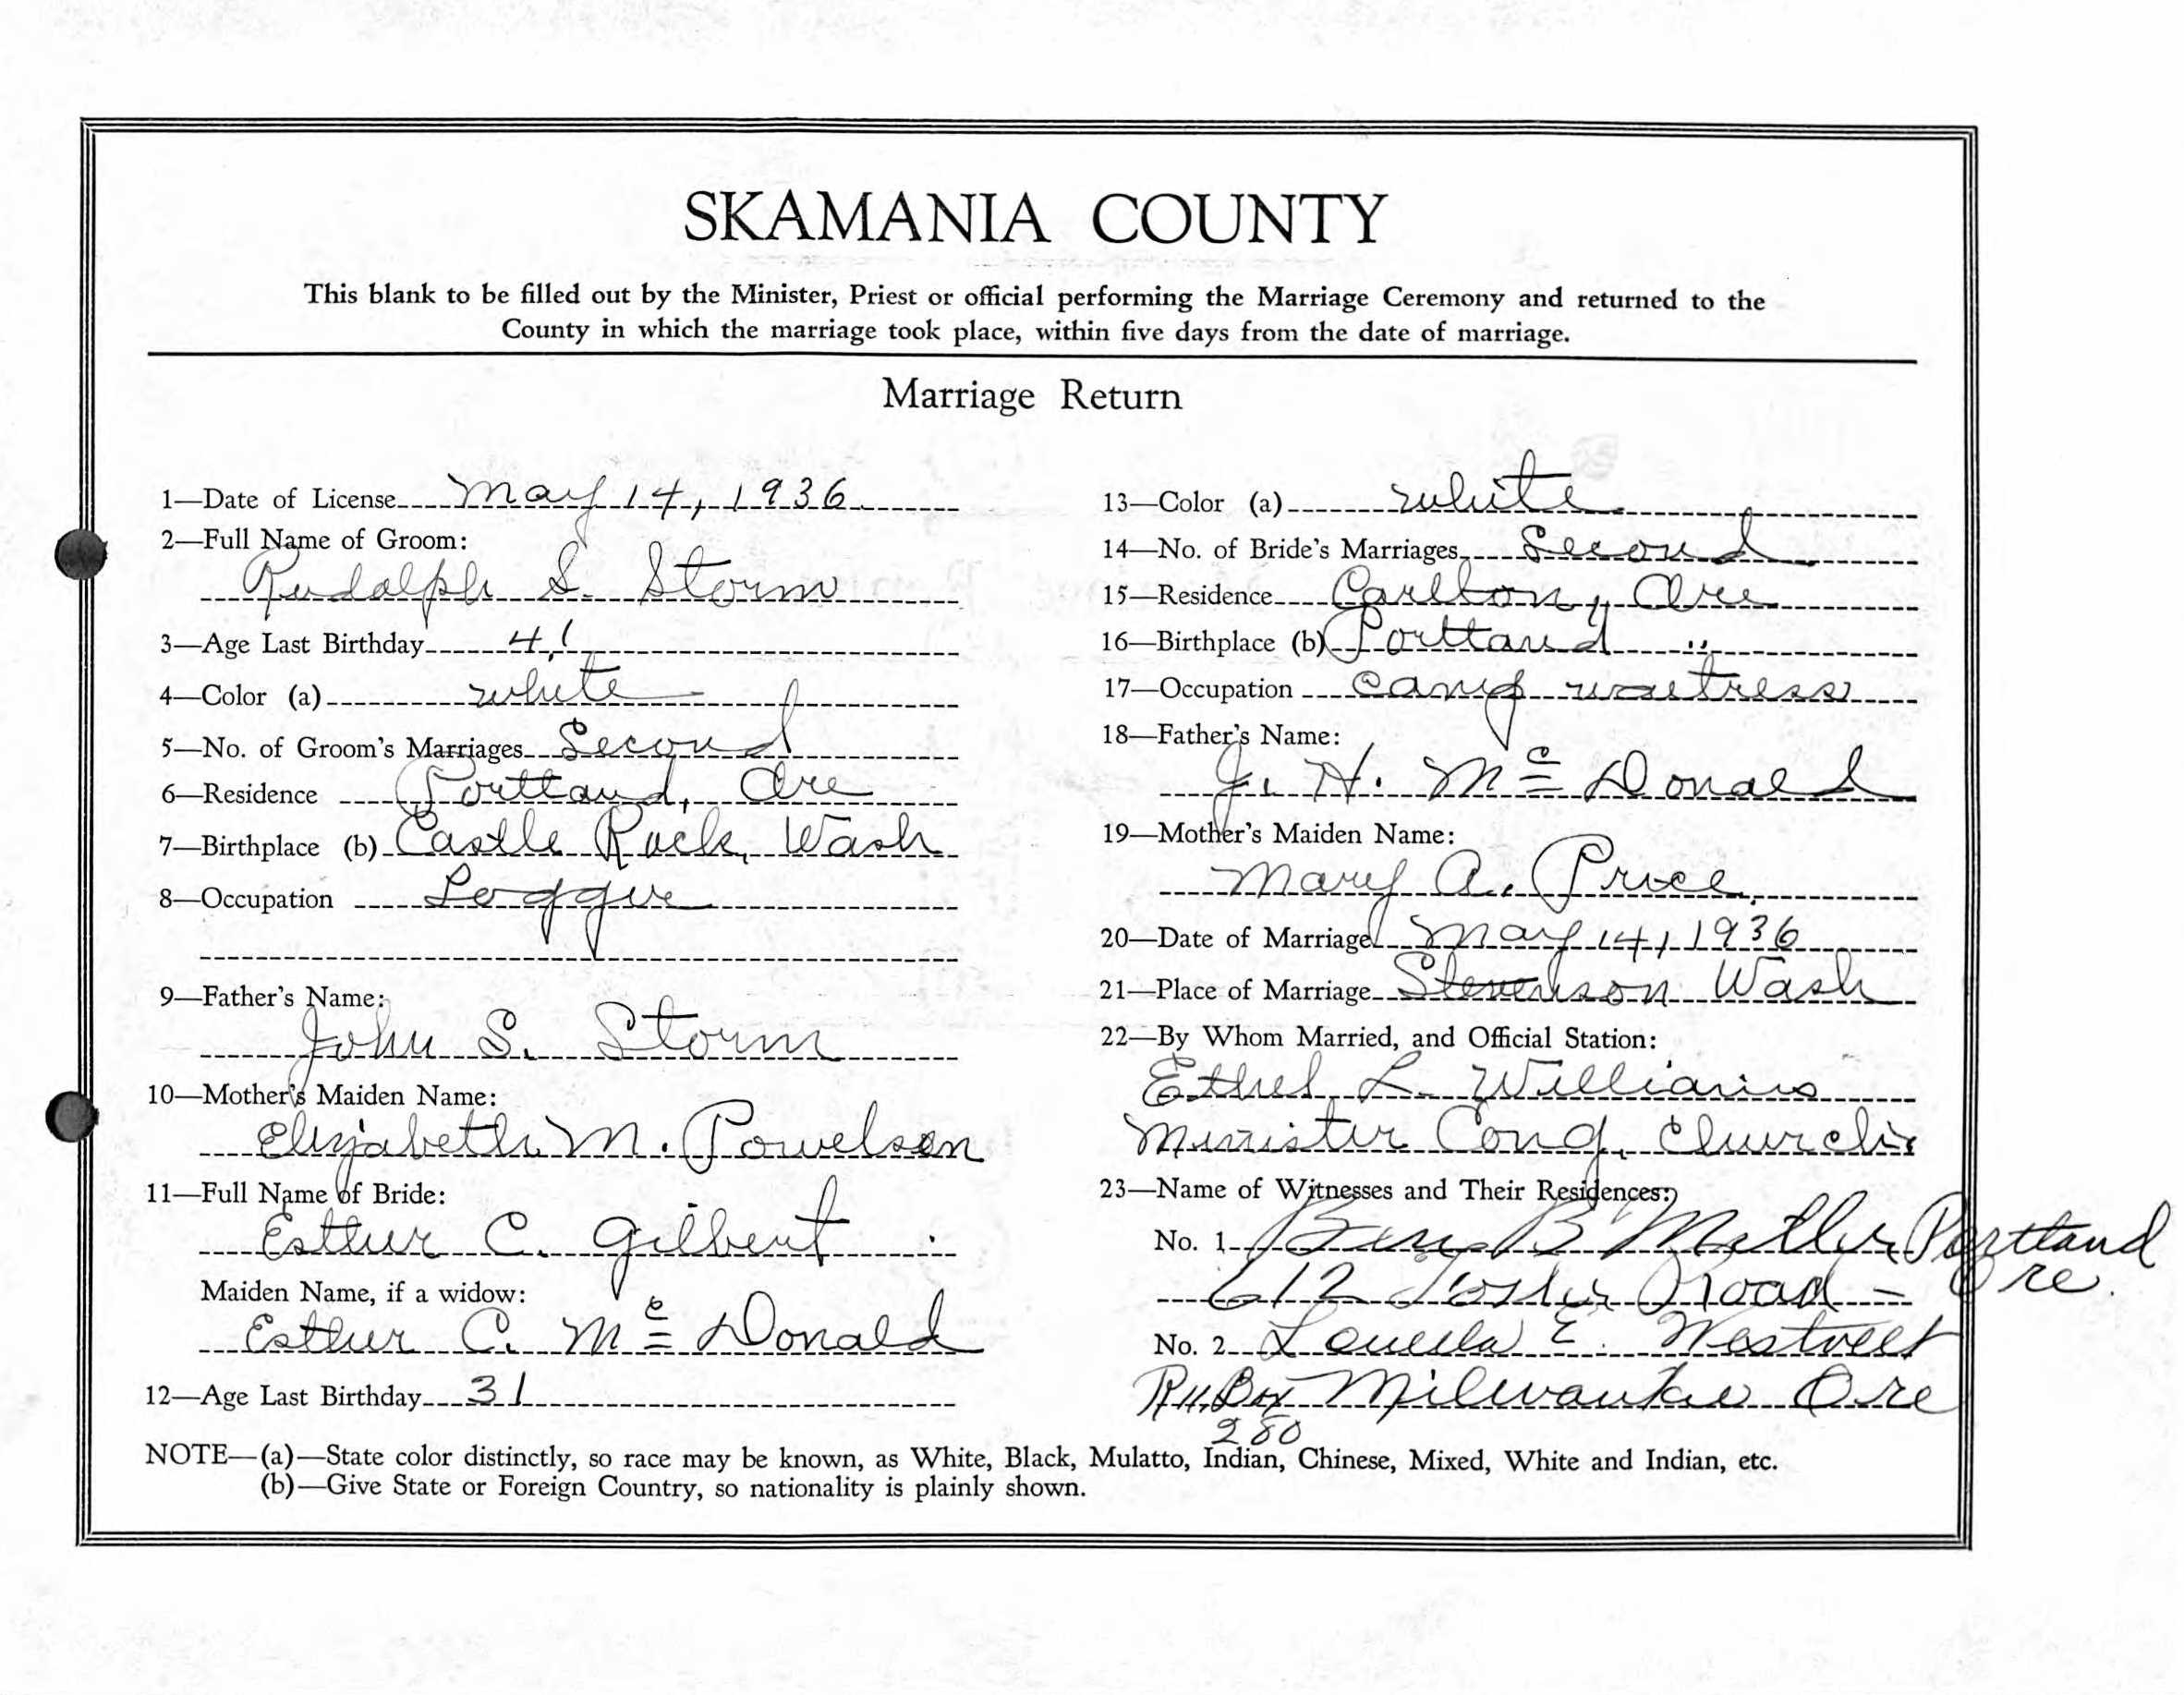 SKAMANIA COUNTY
This blank to be filled out by the Minister, Priest or official performing the Marriage Ceremony and returned to the
County in which the marriage took place, within five days from the date of marriage.
Marriage Return
1—Date of License May 14, 1936
2—Full Name of Groom:
Rudolph S. Storm
3—Age Last Birthday 41
4—Color (a) white
5—No. of Groom's Marriages Second
6—Residence Portland, Ore
7—Birthplace (b) Castle Rock, Wash
8—Occupation Logger
9—Father's Name:
John S. Storm
10—Mother's Maiden Name:
Elizabeth M. Powelson
11—Full Name of Bride:
Esther C. Gilbert
Maiden Name, if a widow:
Esther C. Mc Donald
12—Age Last Birthday 31
13—Color (a) white
14—No. of Bride's Marriages Second
15—Residence Carlton, Ore
16—Birthplace (b) Portland "
17—Occupation camp waitress
18—Father's Name:
J. H. Mc Donald
19—Mother's Maiden Name:
Mary A. Price
20—Date of Marriage May 14, 1936
21—Place of Marriage Stevenson Wash
22—By Whom Married, and Official Station:
Ethel L. Williams
Minister Cong. Church
23—Name of Witnesses and Their Residences:
No. 1 B Portland
612 Foster Road - Ore.
No. 2 E.
Box Milwaukie Ore
280
NOTE—(a)—State color distinctly, so race may be known, as White, Black, Mulatto, Indian, Chinese, Mixed, White and Indian, etc.
(b)—Give State or Foreign Country, so nationality is plainly shown.